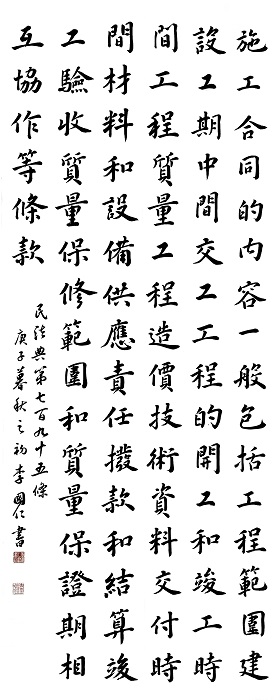 施工合同的内容一般包括工程範圍建
設工期中間交工工程的開工和竣工時
間工程質量工程造價技術資料交付時
間材料和設備供應責任撥款和結算竣
工驗收質量保修範圍和質量保證期相
互協作等條款
民法典第七百九十五條
庚子暮秋之初李國仁書